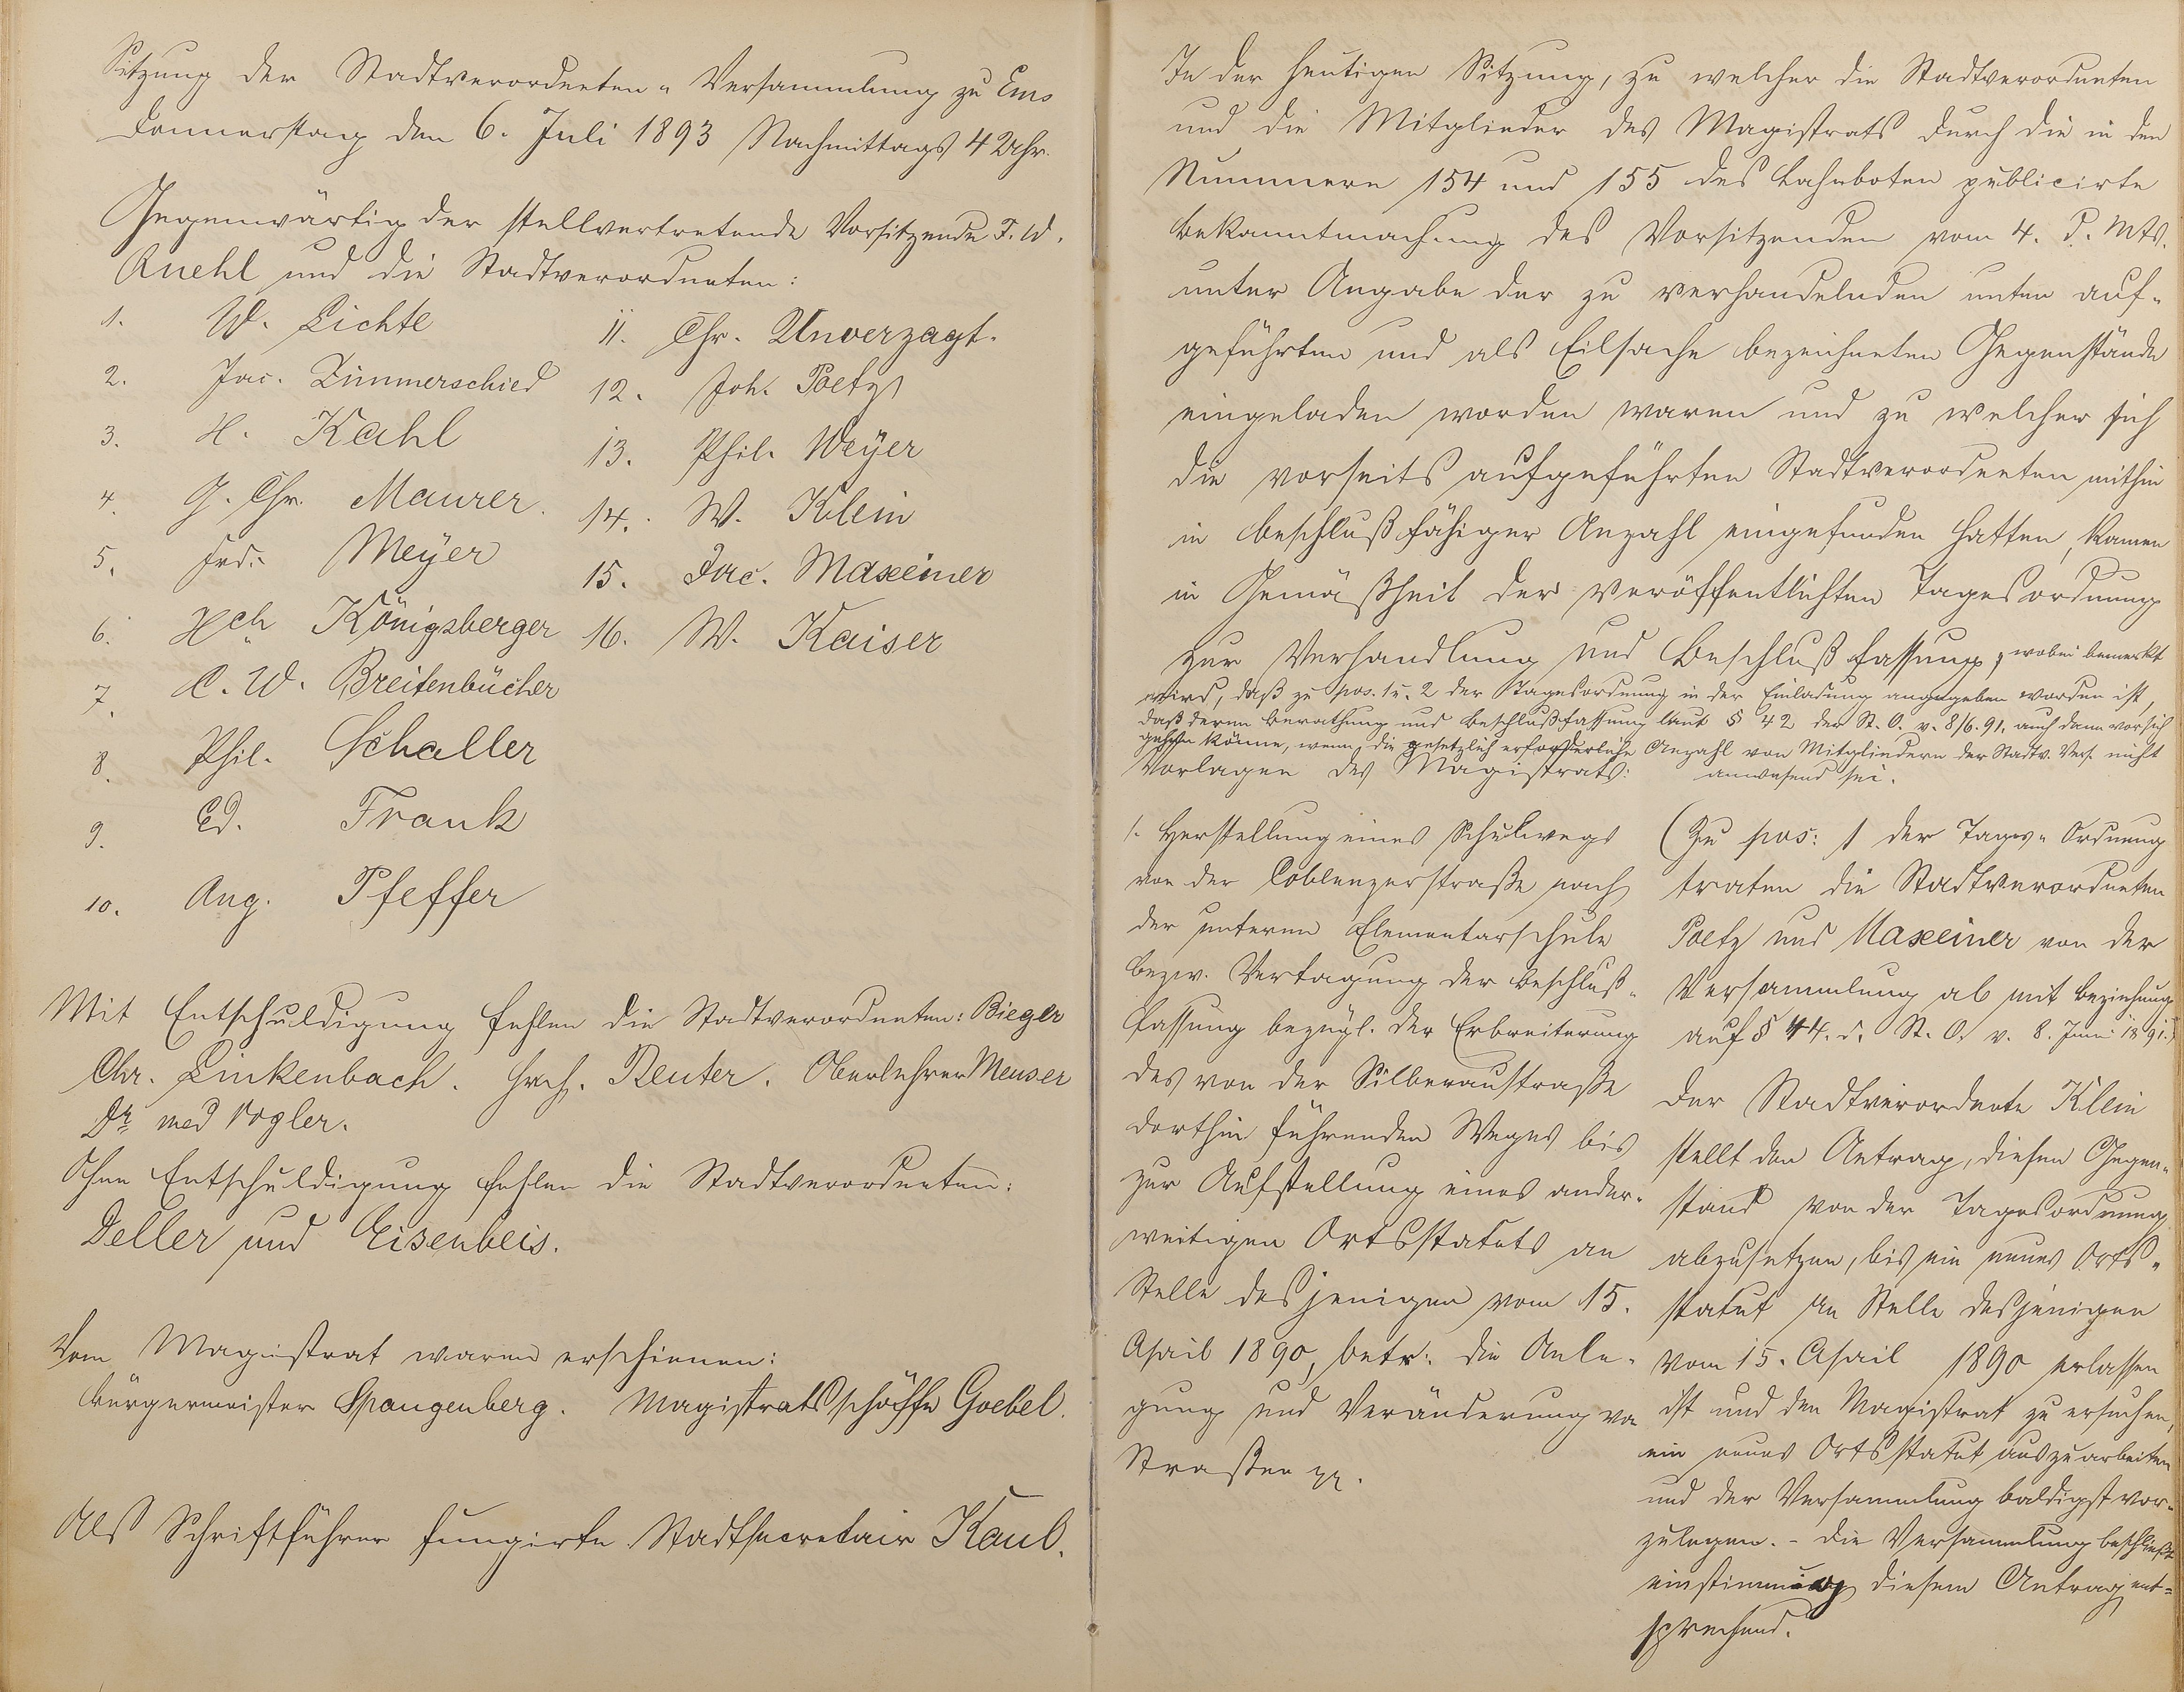 Sitzung der Stadtverordneten-Versammlung zu Ems
Donnerstag den 6. Juli 1893 Nachmittags 4 Uhr.
Gegenwärtig der stellvertretende Vorsitzende F. W.
Ruehl und die Stadtverordneten:
1. W. Lichte
2. Jac. Zimmerschied
3. H. Kahl
4. G. Chr. Maurer.
5. Frd. Meyer
6. Hch Königsberger
7. C. W. Breitenbücher
8. Phil. Schaller
9. Ed. Frank
10. Aug. Pfeffer
11. Chr. Unverzagt.
12. Joh. Poetz
13. Phil. Weyer
14. W. Klein
15. Jac. Maxeiner
16. W. Kaiser
Mit Entschuldigung fehlen die Stadtverordneten: Bieger
Chr. Linkenbach. Hrch. Reuter. Oberlehrer Meuser
Dr. med Vogler.
Ohne Entschuldigung fehlen die Stadtverordneten:
Deller und Eisenbeis.
Vom Magistrat waren erschienen:
Bürgermeister Spangenberg. Magistratsschöffe Goebel.
Als Schriftführer fungirte Stadtsecretair Kaul.
In der heutigen Sitzung, zu welcher die Stadtverordneten
und die Mitglieder des Magistrats durch die in den
Nummern 154 und 155 des Lahnboten publicirte
Bekanntmachung des Vorsitzenden vom 4. d. Mts.
unter Angabe der zu verhandelnden unten auf-
geführten und als Eilsache bezeichneten Gegenstände
eingeladen worden waren und zu welcher sich
die vorseits aufgeführten Stadtverordneten mithin
in beschlußfähiger Anzahl eingefunden hatten, kamen
in Gemäßheit der veröffentlichten Tagesordnung
zur Verhandlung und Beschlußfassung, wobei bemerkt
wird, daß zu pos. 1 u. 2 der Tagesordnung in der Einladung angegeben worden ist,
daß deren Berathung und Beschlußfassung laut § 42 der St. O. v. 8/6. 91. auch dann vor sich
gehen könne, wenn die gesetzlich erforderliche Anzahl von Mitgliedern der Stadtv. Vers. nicht
anwesend sei.
Vorlagen des Magistrats:
1. Herstellung eines Schulwegs
von der Coblenzerstraße nach
der unteren Elementarschule
bezw. Vertagung der Beschluß-
fassung bezügl. der Erbreiterung
des von der Silberaustraße
dorthin führenden Weges bis
zur Aufstellung eines ander-
weitigen Ortsstatuts an
Stelle desjenigen vom 15.
April 1890, betr. die Anle-
gung und Veränderung von
Straßen pp.
(Zu pos: 1 der Tages-Ordnung
traten die Stadtverordneten
Poetz und Maxeiner von der
Versammlung ab mit Beziehung
auf § 44. d. St. O. v. 8. Juni 1891.)
Der Stadtverordnete Klein
stellt den Antrag, diesen Gegen-
stand von der Tagesordnung
abzusetzen, bis ein neues Orts-
statut an Stelle desjenigen
vom 15. April 1890 erlassen
ist und den Magistrat zu ersuchen,
ein neues Ortsstatut auszuarbeiten
und der Versammlung baldigst vor-
zulegen. - Die Versammlung beschließt
einstimmig diesem Antrag ent-
sprechend.